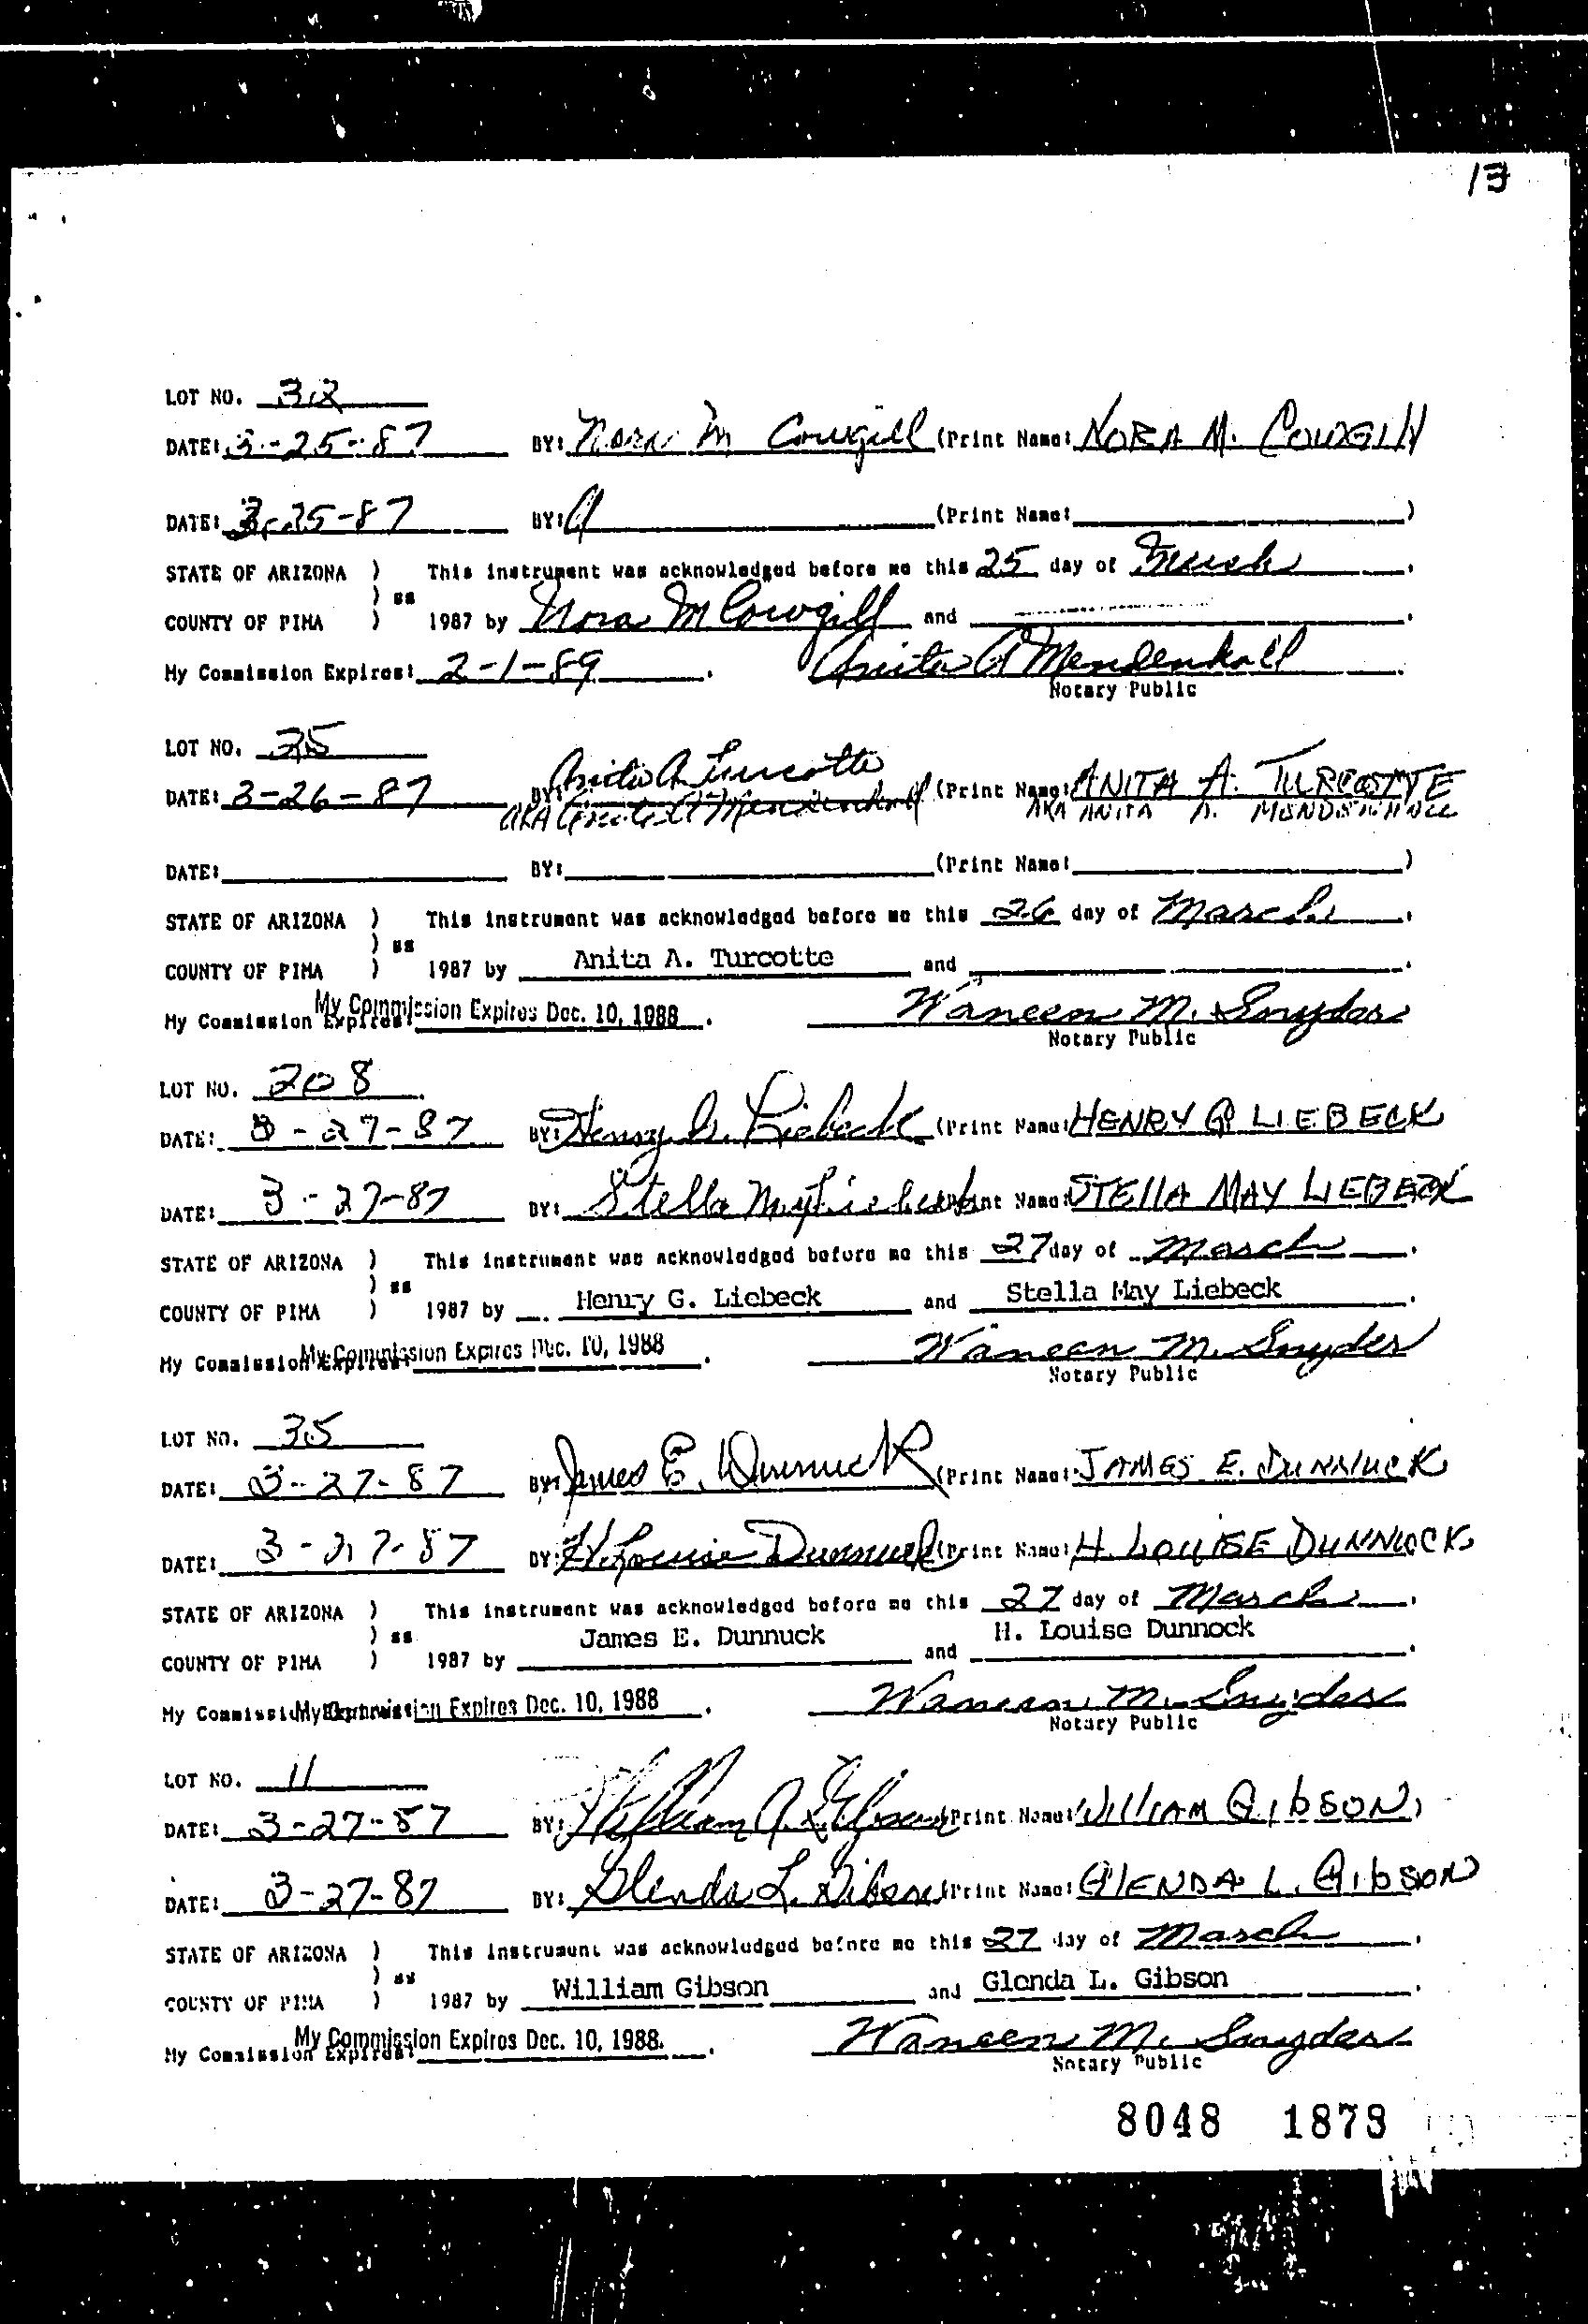 13
LOT NO. 32
DATE: 3-25-87 BY: Nora M Cowgill (Print Name: NORA M. COWGILL
DATE: 3-25-87 BY: (Print Name: )
STATE OF ARIZONA ) This instrument was acknowledged before me this 25 day of March .
) ss
COUNTY OF PIMA ) 1987 by Nora M Cowgill and .
My Commission Expires: 2-1-89 . Anita A Mendenhall
Notary Public
LOT NO. 35
DATE: 3-26-87 BY: Anita A. Turcotte (Print Name: ANITA A. TURCOTTE
AKA Anita A Mendenhall AKA ANITA A. MENDENHALL
DATE: BY: (Print Name: )
STATE OF ARIZONA ) This instrument was acknowledged before me this 26 day of March .
) ss
COUNTY OF PIMA ) 1987 by Anita A. Turcotte and .
My Commission Expires: My Commission Expires Dec. 10, 1988 . Waneen M. Snyder
Notary Public
LOT NO. 208
DATE: 3-27-87 BY: Henry G. Liebeck (Print Name: HENRY G LIEBECK
DATE: 3-27-87 BY: Stella May Liebeck (Print Name: STELLA MAY LIEBECK
STATE OF ARIZONA ) This instrument was acknowledged before me this 27 day of March .
) ss
COUNTY OF PIMA ) 1987 by Henry G. Liebeck and Stella May Liebeck .
My Commission Expires: My Commission Expires Dec. 10, 1988 . Waneen M. Snyder
Notary Public
LOT NO. 35
DATE: 3-27-87 BY: James E. Dunnuck (Print Name: JAMES E. DUNNUCK
DATE: 3-27-87 BY: H. Louise Dunnuck (Print Name: H. LOUISE DUNNUCK
STATE OF ARIZONA ) This instrument was acknowledged before me this 27 day of March .
) ss James E. Dunnuck H. Louise Dunnock
COUNTY OF PIMA ) 1987 by and .
My Commission Expires: My Commission Expires Dec. 10, 1988 . Waneen M. Snyder
Notary Public
LOT NO. 11
DATE: 3-27-87 BY: William A. Gibson (Print Name: WILLIAM GIBSON
DATE: 3-27-87 BY: Glenda L. Gibson (Print Name: GLENDA L. GIBSON
STATE OF ARIZONA ) This instrument was acknowledged before me this 27 day of March .
) ss
COUNTY OF PIMA ) 1987 by William Gibson and Glenda L. Gibson .
My Commission Expires: My Commission Expires Dec. 10, 1988. . Waneen M. Snyder
Notary Public
8048 1878